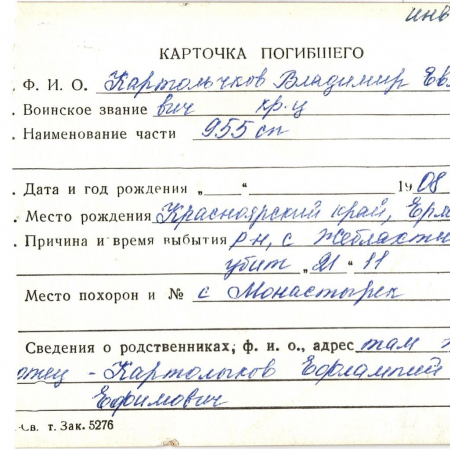 инв
КАРТОЧКА ПОГИБШЕГО
. Ф. И. О. Картольчков Владимир Евл
. Воинское звание вич кр-ц
. Наименование части 955 сп
. Дата и год рождения „ “ 1908
. Место рождения Красноярский край, Ерма
. Причина и время выбытия р-н, с Жеблахти
убит „21“ 11
Место похорон и № с Монастырек
Сведения о родственниках, ф. и. о., адрес там ж
отец - Картолыков Ефлампий
Ефимович
Св. т. Зак. 5276